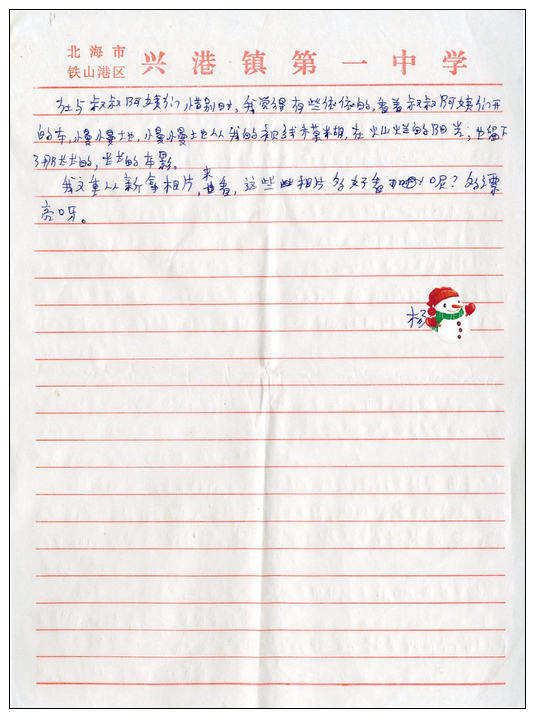 北海市
铁山港区
兴港镇第一中学
在与叔叔阿姨们惜别时,我觉得有些依依的,看着叔叔阿姨们开
的车,慢慢地,慢慢地从我的视线模糊,在灿烂的阳光;也留下
了那长长的,长长的车影。
我又重从新拿相片来看,这些相片多好看呢?多漂
亮呀。
杨